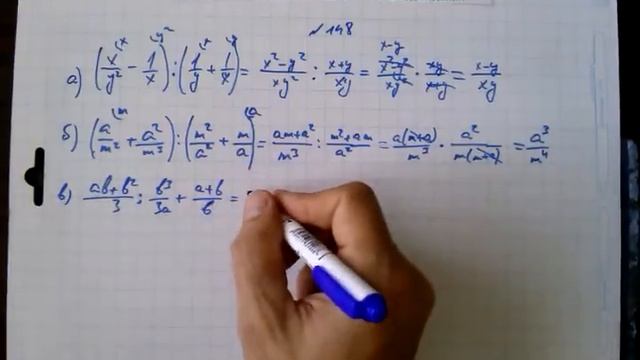 № 148
а) (x/y² − 1/x) : (1/y + 1/x) = (x² − y²)/(xy²) : (x+y)/(xy) = (x² − y²)/(xy²) · xy/(x+y) = (x−y)/(xy)
б) (a/m² + a²/m³) : (m²/a² + m/a) = (am+a²)/m³ : (m²+am)/a² = a(m+a)/m³ · a²/(m(m+a)) = a³/m⁴
в) (ab+b²)/3 : b³/(3a) + (a+b)/b =